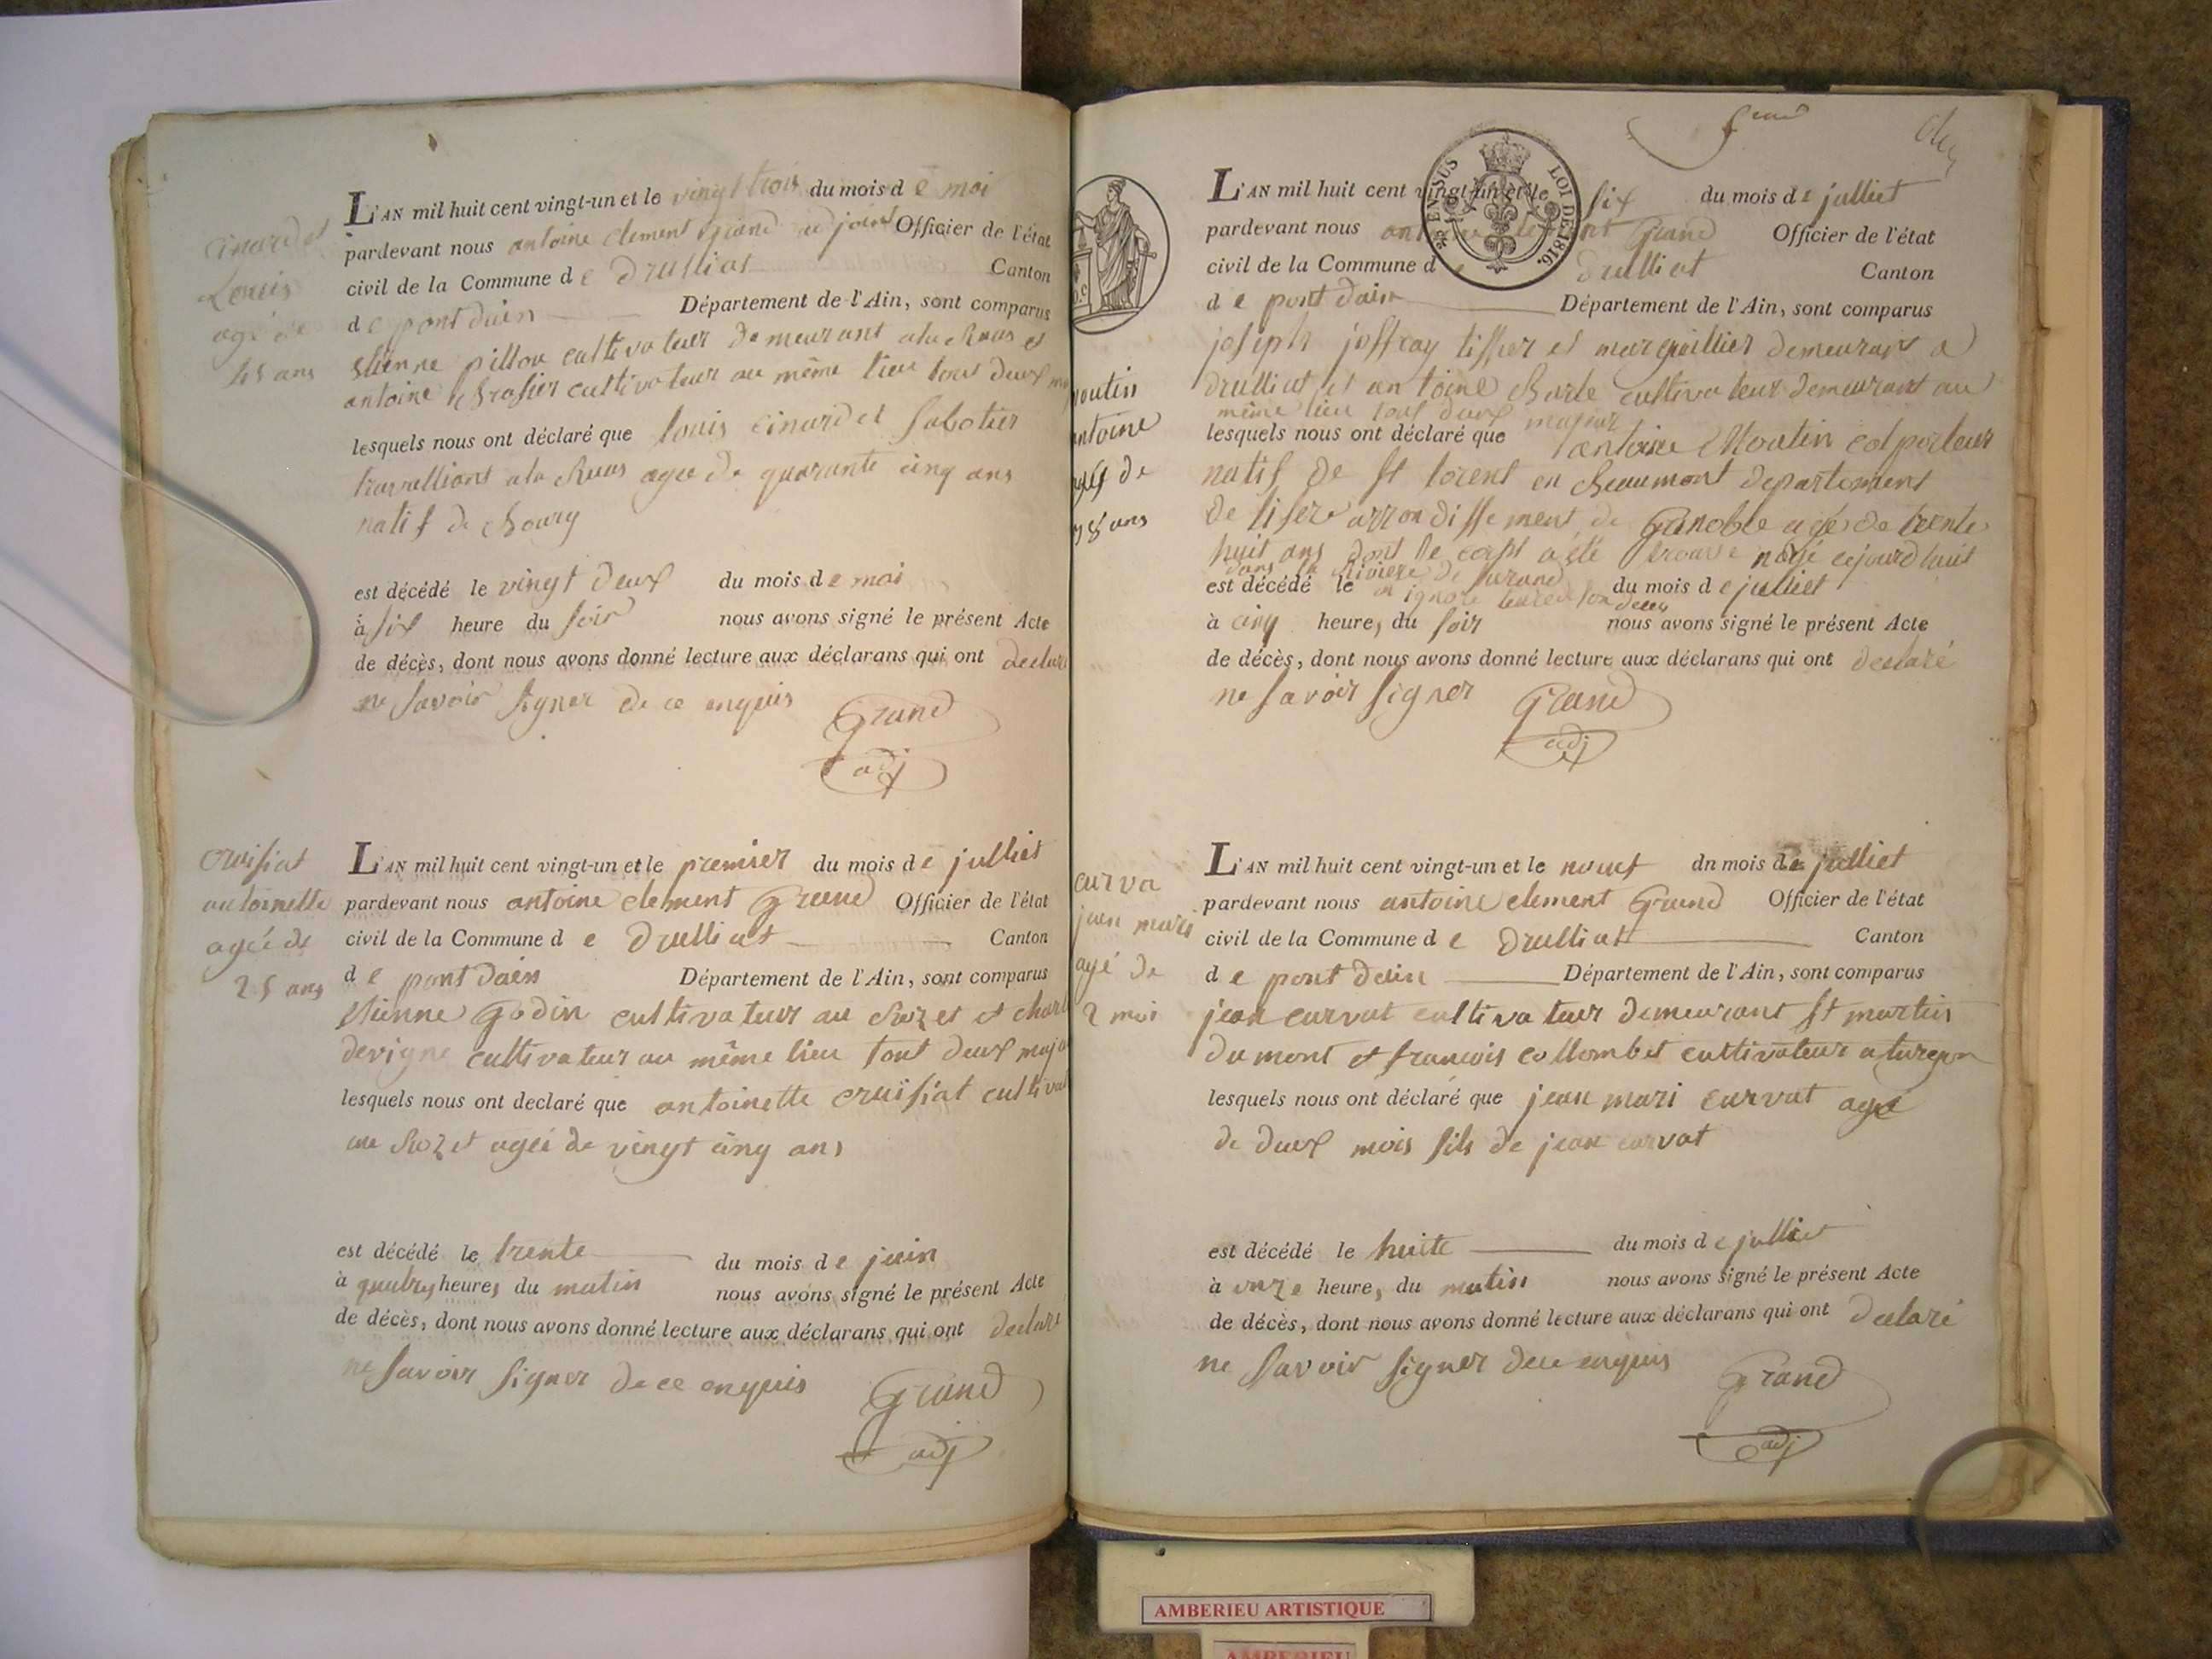 cinardet
Louis
agé de
45 ans
L'AN mil huit cent vingt-un et le vingt trois du mois de mai
pardevant nous antoine clement Grand adjoint Officier de l'état
civil de la Commune de Drulliat Canton
de pont dain Département de l'Ain, sont comparus
etienne pillou cultivateur demeurant a la Ruas et
antoine cultivateur au même lieu tous deux
lesquels nous ont déclaré que louis cinardet sabotier
travalliant a la Ruas agée de quarante cinq ans
natif de
est décédé le vingt deux du mois de mai
à six heure du soir nous avons signé le présent Acte
de décès, dont nous avons donné lecture aux déclarans qui ont declaré
ne savoir signer de ce enquis Grand
adj
cruisiat
antoinette
agée de
25 ans
L'AN mil huit cent vingt-un et le premier du mois de julliet
pardevant nous antoine clement Grand Officier de l'état
civil de la Commune de Drulliat Canton
de pont dain Département de l'Ain, sont comparus
etienne Godin cultivateur au et
devigne cultivateur au même lieu tout deux
lesquels nous ont declaré que antoinette cruisiat
au agée de vingt cinq ans
est décédé le trente du mois de juin
à quatre heures du matin nous avons signé le présent Acte
de décès, dont nous avons donné lecture aux déclarans qui ont declaré
ne savoir signer de ce enquis Grand
adj
EN SUS LOI DE 1816.
moutin
antoine
de
38 ans
L'AN mil huit cent vingt-un et le six du mois de julliet
pardevant nous antoine clement Grand Officier de l'état
civil de la Commune de Drulliat Canton
de pont dain Département de l'Ain, sont comparus
joseph joffray tisser et marguillier demeurant a
drulliat et antoine cultivateur demeurant au
même lieu tous deux majeur
lesquels nous ont déclaré que antoine Moutin colporteur
natif de St lorent en Beaumont departement
de lisere arrondissement de Granoble agé de trente
huit ans dont le corps a été trouvé noyé cejourdhuit
dans la Riviere de
est décédé le on ignore du mois de julliet
à cinq heures du soir nous avons signé le présent Acte
de décès, dont nous avons donné lecture aux déclarans qui ont declaré
ne savoir signer Grand
adj
curva
jean mari
agé de
2 moi
L'AN mil huit cent vingt-un et le neuf dn mois de julliet
pardevant nous antoine clement Grand Officier de l'état
civil de la Commune de Drulliat Canton
de pont dain Département de l'Ain, sont comparus
jean curvat cultivateur demeurant St martin
du mont et francois collombet cultivateur a turgon
lesquels nous ont déclaré que jean mari curvat agé
de deux mois fils de jean curvat
est décédé le huite du mois de julliet
à onze heure, du matin nous avons signé le présent Acte
de décès, dont nous avons donné lecture aux déclarans qui ont declaré
ne savoir signer de ce enquis Grand
adj
AMBERIEU ARTISTIQUE
AMBERIEU